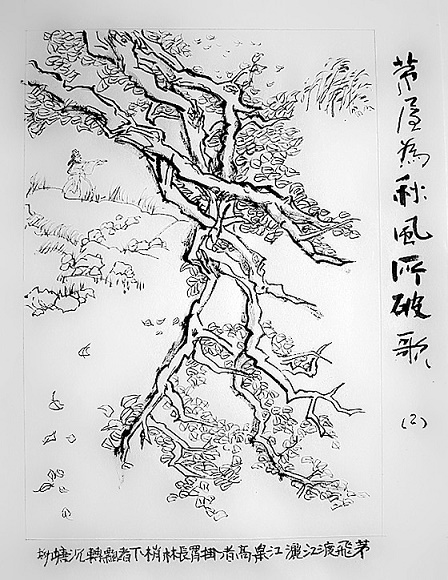 茅屋為秋風所破歌
(2)
茅飛渡江灑江皋高者掛罥長林梢下者飄轉沉塘坳